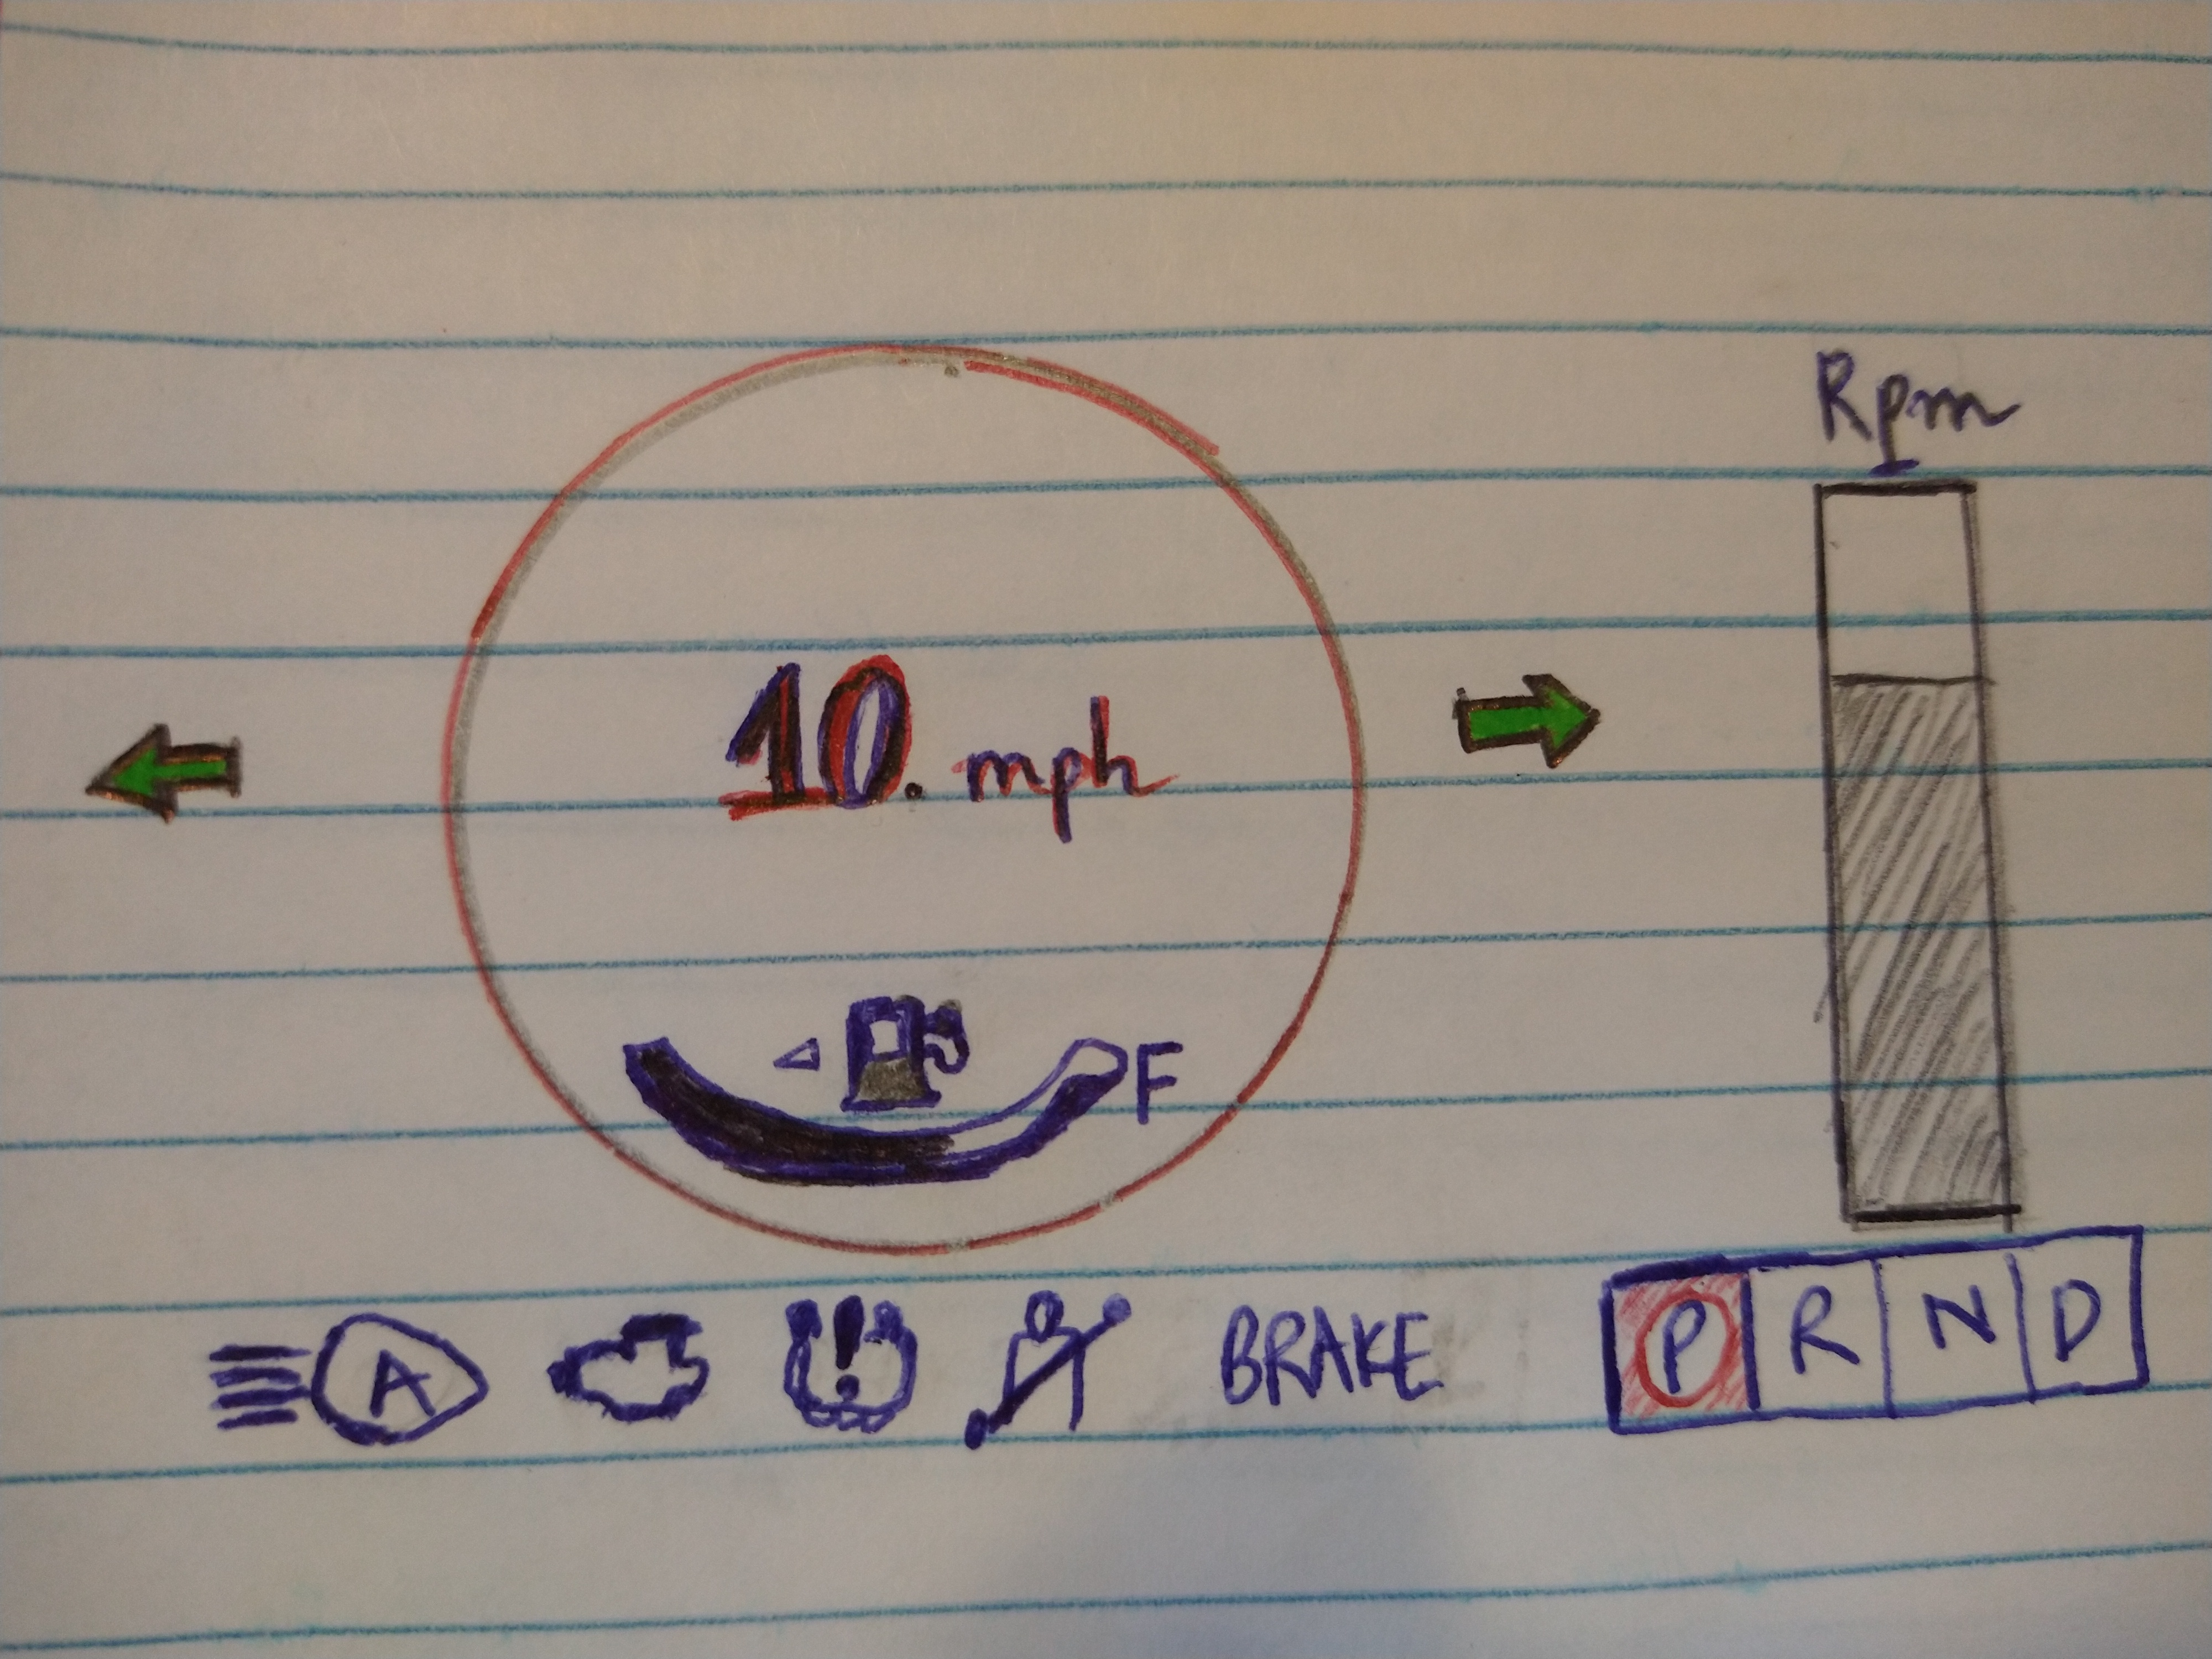 Rpm
10. mph
F
A
!
BRAKE
P R N D